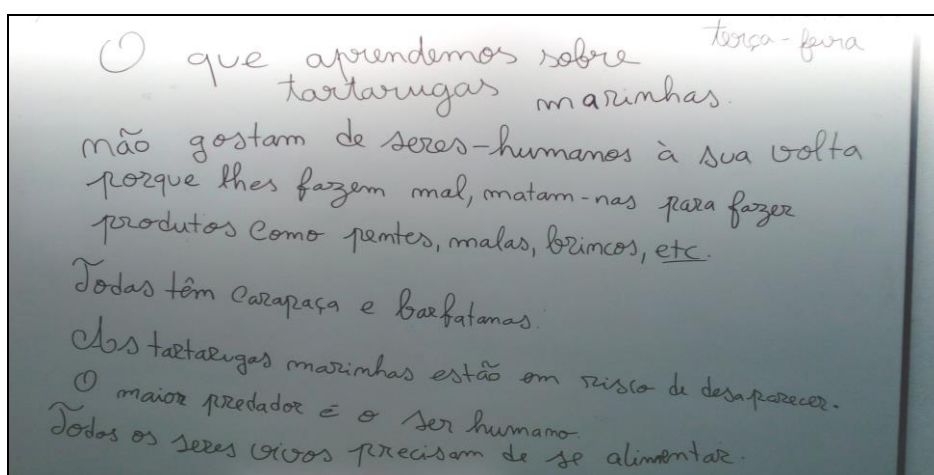 terça-feira
O que aprendemos sobre
tartarugas marinhas.
não gostam de seres-humanos à sua volta
porque lhes fazem mal, matam-nas para fazer
produtos como pentes, malas, brincos, etc.
Todas têm carapaça e barbatanas.
As tartarugas marinhas estão em risco de desaparecer.
O maior predador é o ser humano.
Todos os seres vivos precisam de se alimentar.